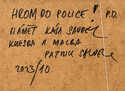 HROM DO POLICE! P.D.
NÁMĚT KÁJA SAUDEK
KRESBA A MALBA
PATRIK
2023/10